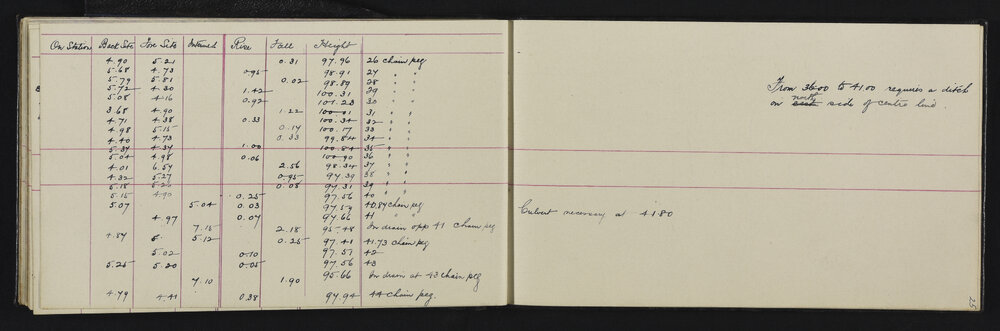 On Station Back Site Fore Site Intermed Rise Fall Height
4.90 5.21 0.31 97.96 26 chain peg
5.68 4.73 0.95 98.91 27 " "
5.79 5.81 0.02 98.89 28 " "
5.72 4.30 1.42 100.31 29 " "
5.08 4.16 0.92 101.23 30 " "
3.68 4.90 1.22 100.01 31 " "
4.71 4.38 0.33 100.34 32 " "
4.98 5.15 0.17 100.17 33 " "
4.40 4.73 0.33 99.84 34 " "
5.34 4.34 1.00 100.84 35 " "
5.04 4.98 0.06 100.90 36 " "
4.01 6.57 2.56 98.34 37 " "
4.32 5.27 0.95 97.39 38 " "
5.18 5.26 0.08 97.31 39 " "
5.15 4.90 0.25 97.56 40 " "
5.07 5.04 0.03 97.59 40.84 chain peg
4.97 0.07 97.66 41 " "
7.15 2.18 95.48 In drain opp 41 chain peg
4.87 5.12 0.25 97.41 41.73 chain peg
5.02 0.10 97.51 42
5.25 5.20 0.05 97.56 43
7.10 1.90 95.66 In drain at 43 chain peg
4.79 4.41 0.38 97.94 44 chain peg.
From 36.00 to 41.00 requires a ditch
north
on side of centre line.
Culvert necessary at 41.80
25